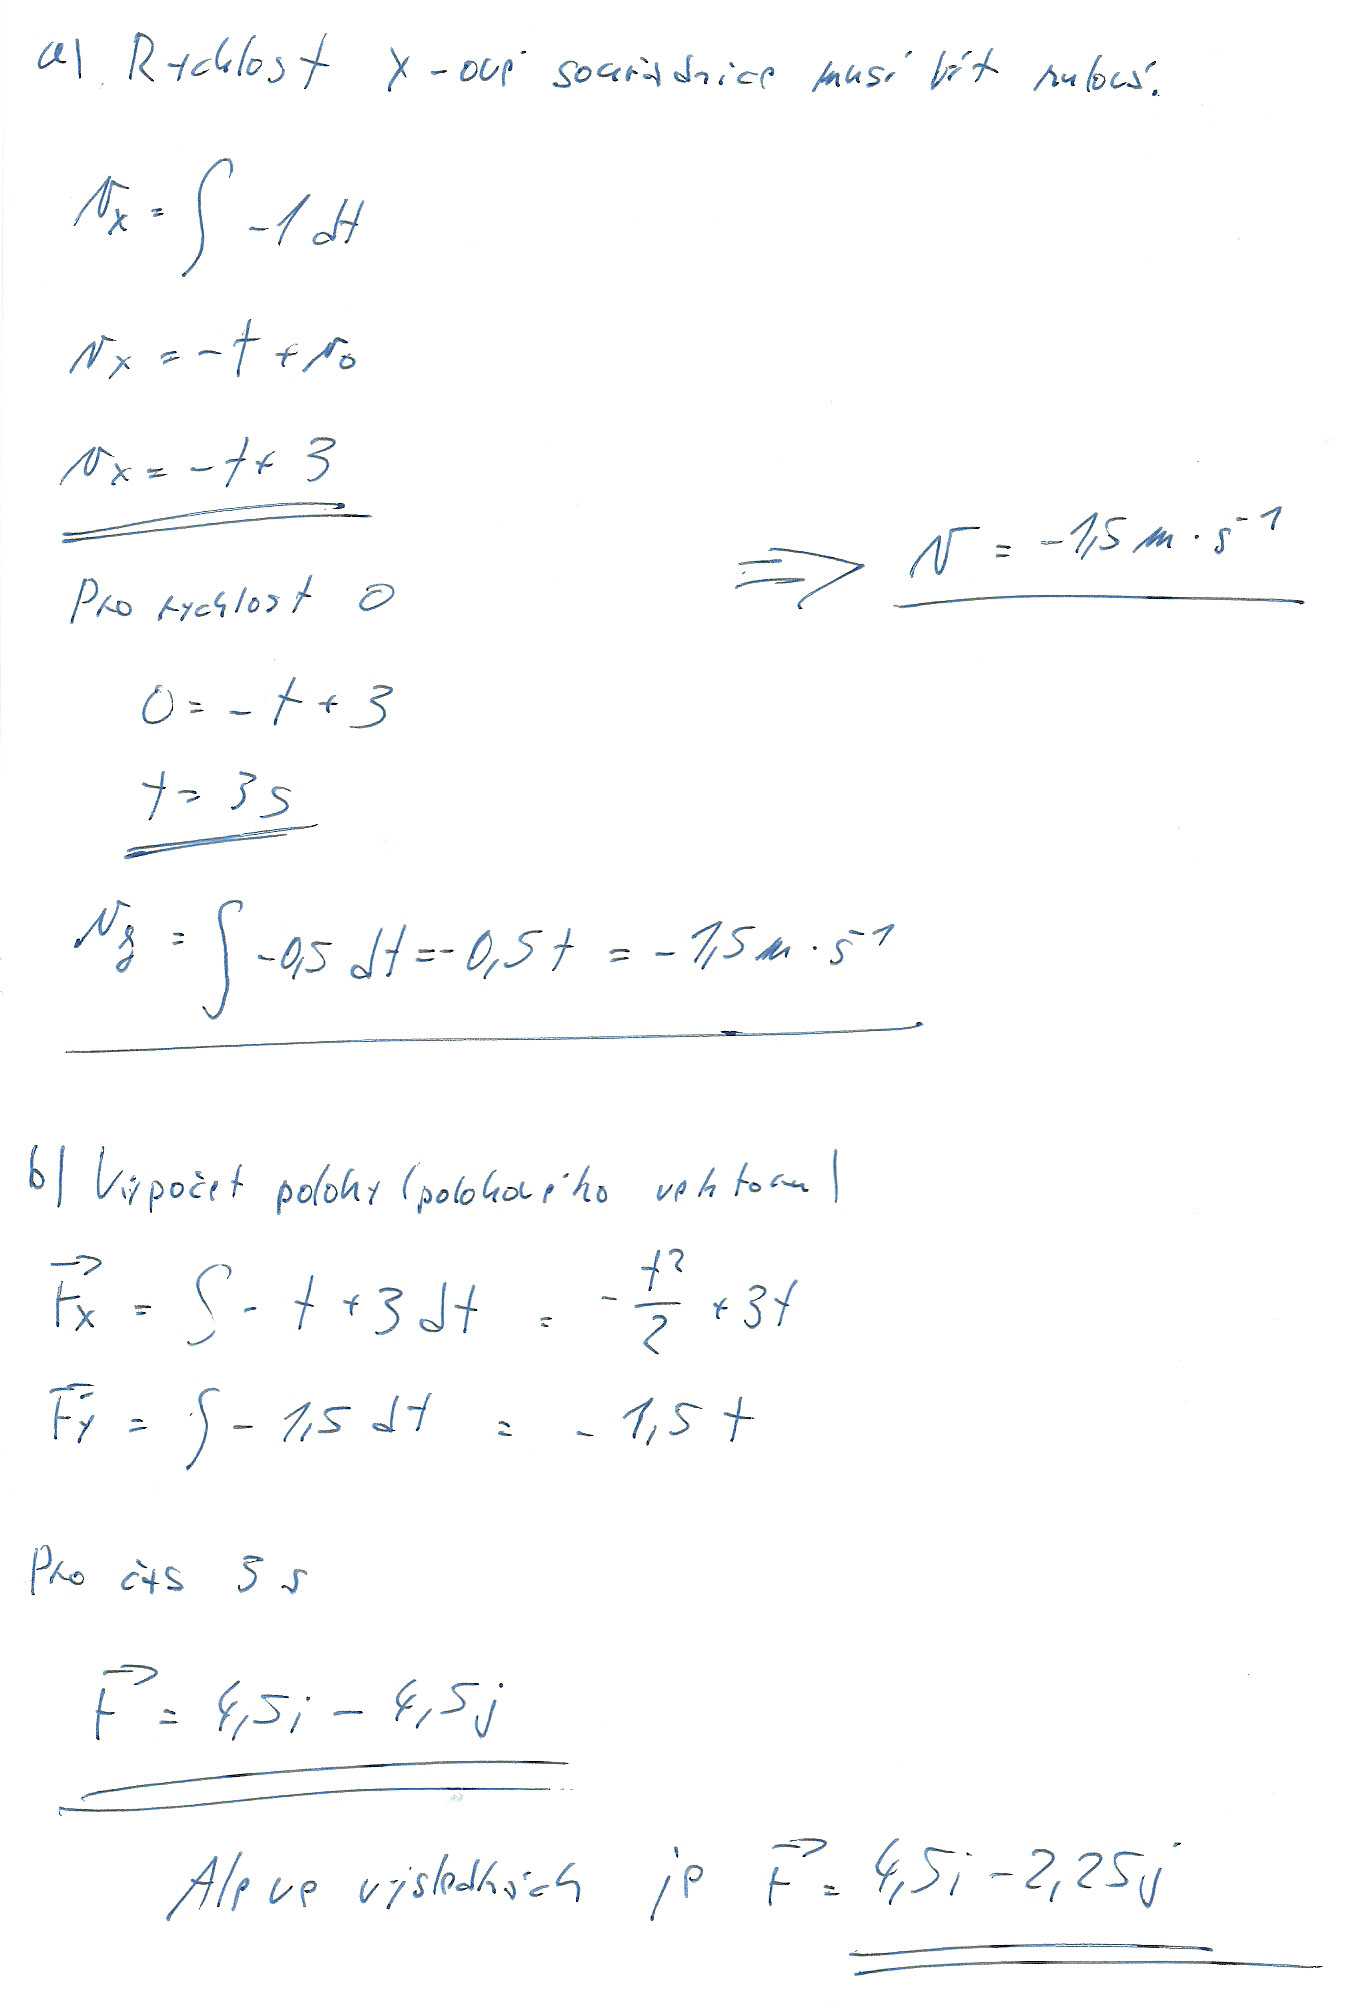 a) Rychlost x-ové souřadnice musí být nulová.
v_x = ∫ -1 dt
v_x = -t + v_0
v_x = -t + 3
⇒ v = -1,5 m · s⁻¹
Pro rychlost 0
0 = -t + 3
t = 3 s
v_y = ∫ -0,5 dt = -0,5 t = -1,5 m · s⁻¹
b) Výpočet polohy (polohového vektoru)
r⃗_x = ∫ -t + 3 dt = -t²/2 + 3t
r⃗_y = ∫ -1,5 dt = -1,5 t
Pro čas 3 s
r⃗ = 4,5i - 4,5j
Ale ve výsledkách je r⃗ = 4,5i - 2,25j